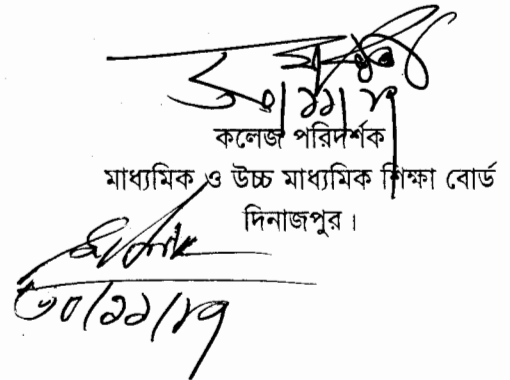 ৩০/১১/১৭
কলেজ পরিদর্শক
মাধ্যমিক ও উচ্চ মাধ্যমিক শিক্ষা বোর্ড
দিনাজপুর।
৩০/১১/১৭